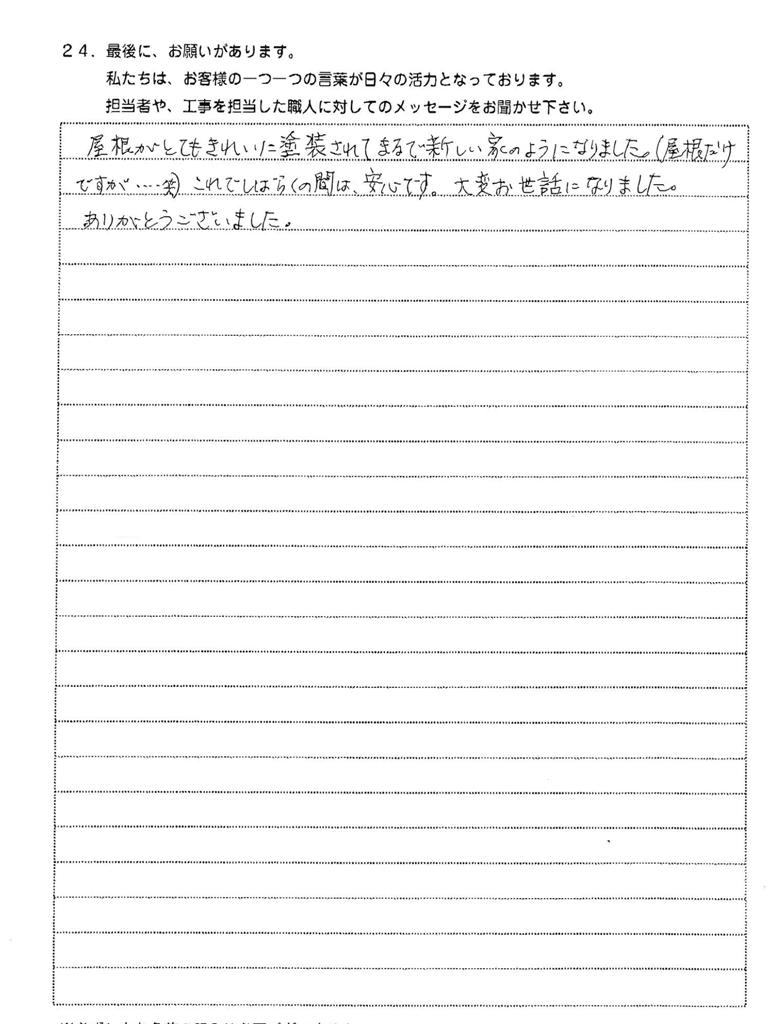 ２４．最後に、お願いがあります。
私たちは、お客様の一つ一つの言葉が日々の活力となっております。
担当者や、工事を担当した職人に対してのメッセージをお聞かせ下さい。
屋根がとてもきれいに塗装されてまるで新しい家のようになりました。(屋根だけ
ですが‥‥笑) これでしばらくの間は、安心です。大変お世話になりました。
ありがとうございました。